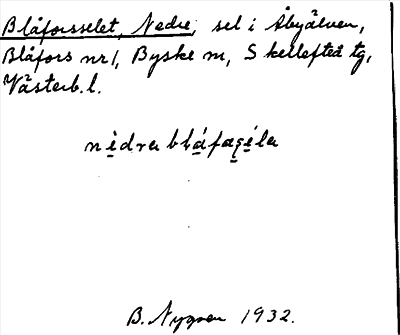 Blåforsselet, Nedre, sel i Åbyälven,
Blåfors nr 1, Byske m, Skellefteå tg,
Västerb. l.
B. Nygren 1932.